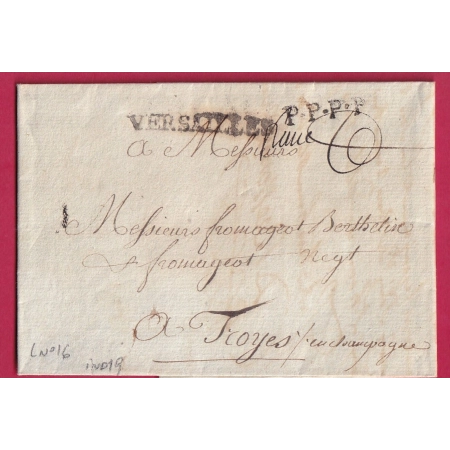 VERSAILLES P.P.P.P
A Messieurs
Messieurs fromageot Berthelin
& fromageot Negt
A Troyes / en champagne
L N°16